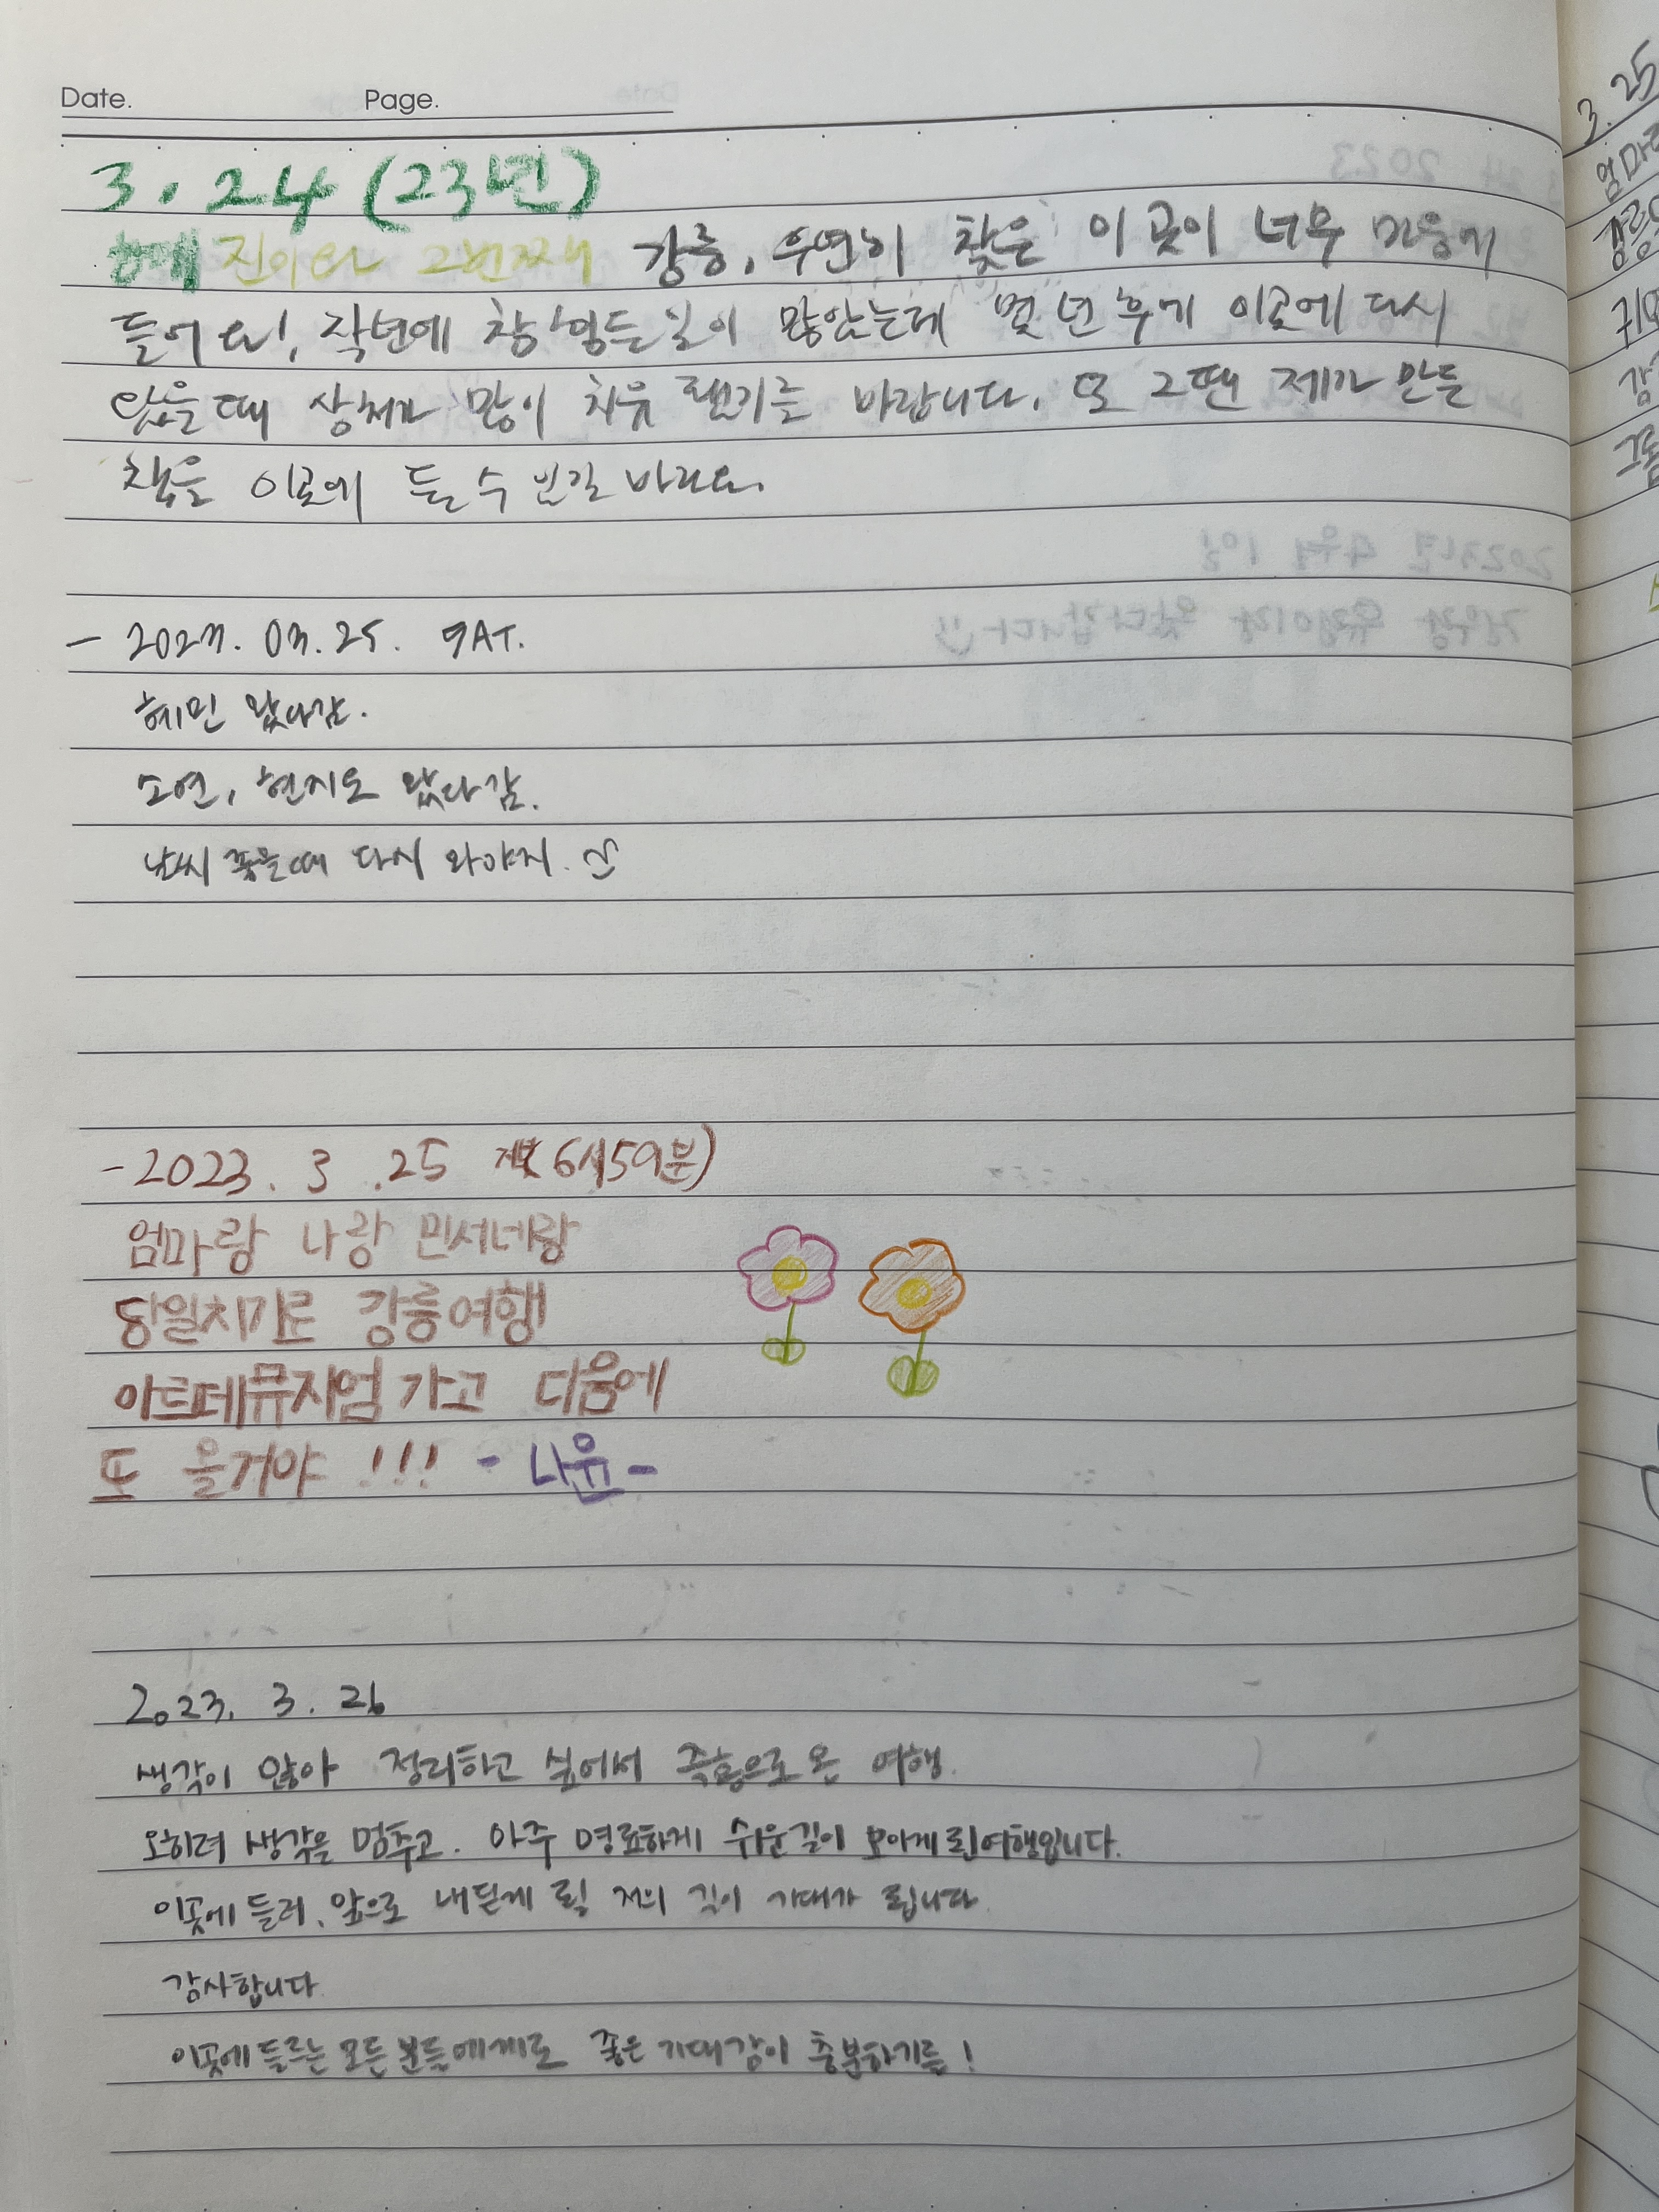 Date. Page.
3. 24 (23년)
혜진이와 2번째 강릉, 우연히 찾은 이 곳이 너무 마음에
들어요!, 작년에 참 힘든 일이 많았는데 몇 년 후에 이곳에 다시
왔을 때 상처가 많이 치유 됐기를 바랍니다. 또 그땐 제가 만든
책을 이곳에 둘 수 있길 바라요.
- 2023. 03. 25. SAT.
혜민 왔다감.
소연, 현지도 왔다감.
날씨 좋을때 다시 와야지.
- 2023. 3. 25 (6시59분)
엄마랑 나랑 민서네랑
당일치기로 강릉여행
아르떼뮤지엄 가고 다음에
또 올거야 !!! - 나윤 -
2023. 3. 26
생각이 많아 정리하고 싶어서 즉흥으로 온 여행.
오히려 생각을 멈추고. 아주 명료하게 쉬운길이 보이게 된 여행입니다.
이곳에 들러, 앞으로 내딛게 될 저의 길이 기대가 됩니다.
감사합니다.
이곳에 들르는 모든 분들에게로 좋은 기대감이 충분하기를!
3. 25